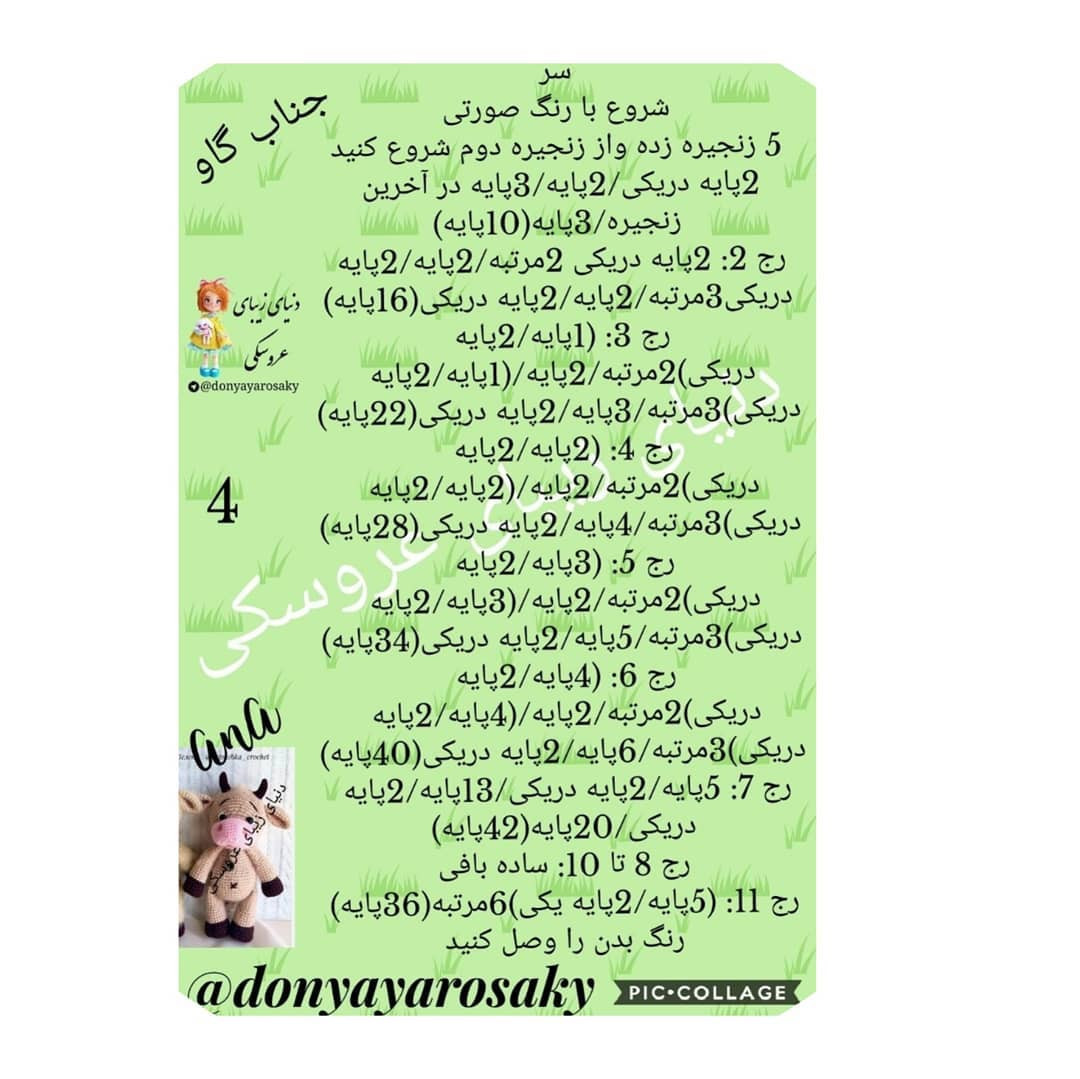 سر
شروع با رنگ صورتی
5 زنجیره زده واز زنجیره دوم شروع کنید
2پایه دریکی/2پایه/3پایه در آخرین
زنجیره/3پایه(10پایه)
رج 2: 2پایه دریکی 2مرتبه/2پایه/2پایه
دریکی3مرتبه/2پایه/2پایه دریکی(16پایه)
رج 3: (1پایه/2پایه
دریکی)2مرتبه/2پایه/(1پایه/2پایه
دریکی)3مرتبه/3پایه/2پایه دریکی(22پایه)
رج 4: (2پایه/2پایه
دریکی)2مرتبه/2پایه/(2پایه/2پایه
دریکی)3مرتبه/4پایه/2پایه دریکی(28پایه)
رج 5: (3پایه/2پایه
دریکی)2مرتبه/2پایه/(3پایه/2پایه
دریکی)3مرتبه/5پایه/2پایه دریکی(34پایه)
رج 6: (4پایه/2پایه
دریکی)2مرتبه/2پایه/(4پایه/2پایه
دریکی)3مرتبه/6پایه/2پایه دریکی(40پایه)
رج 7: 5پایه/2پایه دریکی/13پایه/2پایه
دریکی/20پایه(42پایه)
رج 8 تا 10: ساده بافی
رج 11: (5پایه/2پایه یکی)6مرتبه(36پایه)
رنگ بدن را وصل کنید
جناب گاو
دنیای زیبای
عروسکی
@donyayarosaky
4
دنیای زیبای عروسکی
anA
دنیای زیبای عروسکی
@donyayarosaky
PIC•COLLAGE